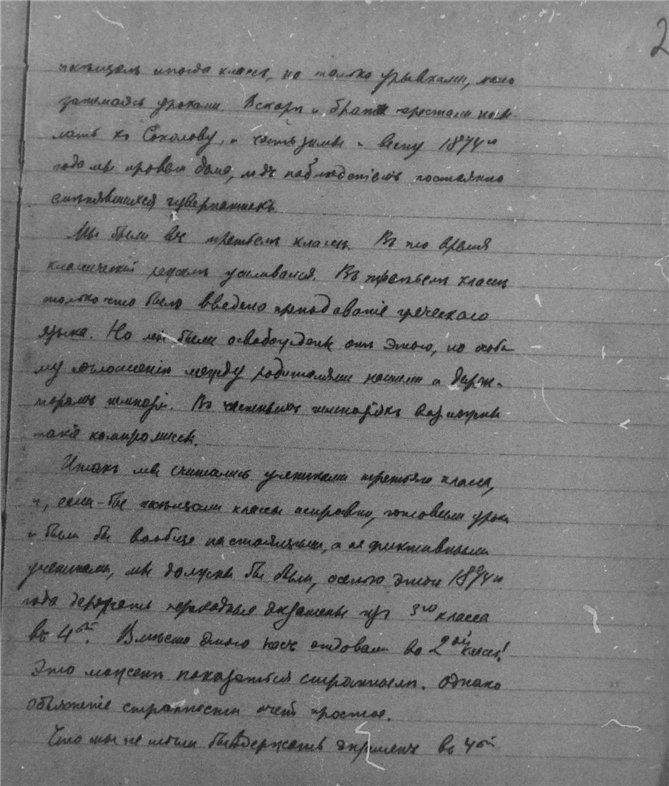 2
посѣщалъ иногда классы, но только урывками, мало
занимаясь уроками. Вскорѣ и брата перестали посы
лать къ Соколову, и часть зимы и весну 1874го
года мы провели дома, подъ наблюденіемъ постоянно
смѣнявшихся гувернантокъ.
Мы были въ третьемъ классѣ. Въ то время
классическій режимъ усиливался. Въ третьемъ классѣ
только что было введено преподаваніе греческаго
языка. Но мы были освобождены отъ этого, по особо
му соглашенію между родителями нашими и дирек-
торомъ гимназіи. Въ частныхъ гимназіяхъ возможны
такіе компромиссы.
Итакъ мы считались учениками третьяго класса,
и, если-бы посѣщали классы исправно, готовили уроки
и были бы вообще настоящими, а не фиктивными
учениками, мы должны бы были, осенью этого 1874го
года держать переходные экзамены изъ 3го класса
въ 4ый. Вмѣсто этого насъ отдавали во 2ой классъ!
Это можетъ показаться страннымъ. Однако
объясненіе странности очень простое.
Что мы не могли бы выдержать экзаменъ въ 4ый